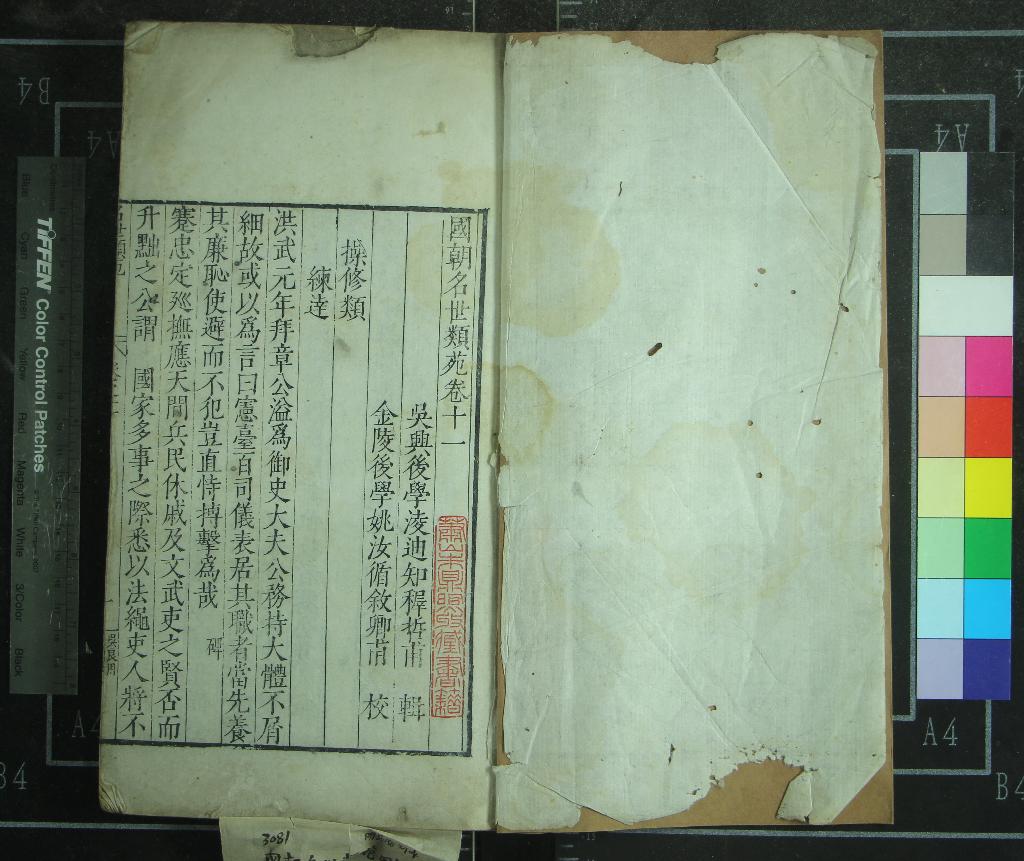 國朝名世類苑卷十一
吳興後學凌迪知穉哲甫 輯
金陵後學姚汝循敘卿甫 校
操修類
練達
洪武元年拜章公溢爲御史大夫公務持大體不屑
細故或以爲言曰憲臺百司儀表居其職者當先養
其廉恥使避而不犯豈直恃搏擊為哉 碑
蹇忠定廵撫應天閭兵民休戚及文武吏之賢否而
升黜之公謂 國家多事之際悉以法繩吏人將不
吳良用
3081
TIFFEN Color Control Patches
Blue
Cyan
Green
Yellow
Red
Magenta
White
3/Color
Black
B4
A4
A4
A4
A4
B4
B4